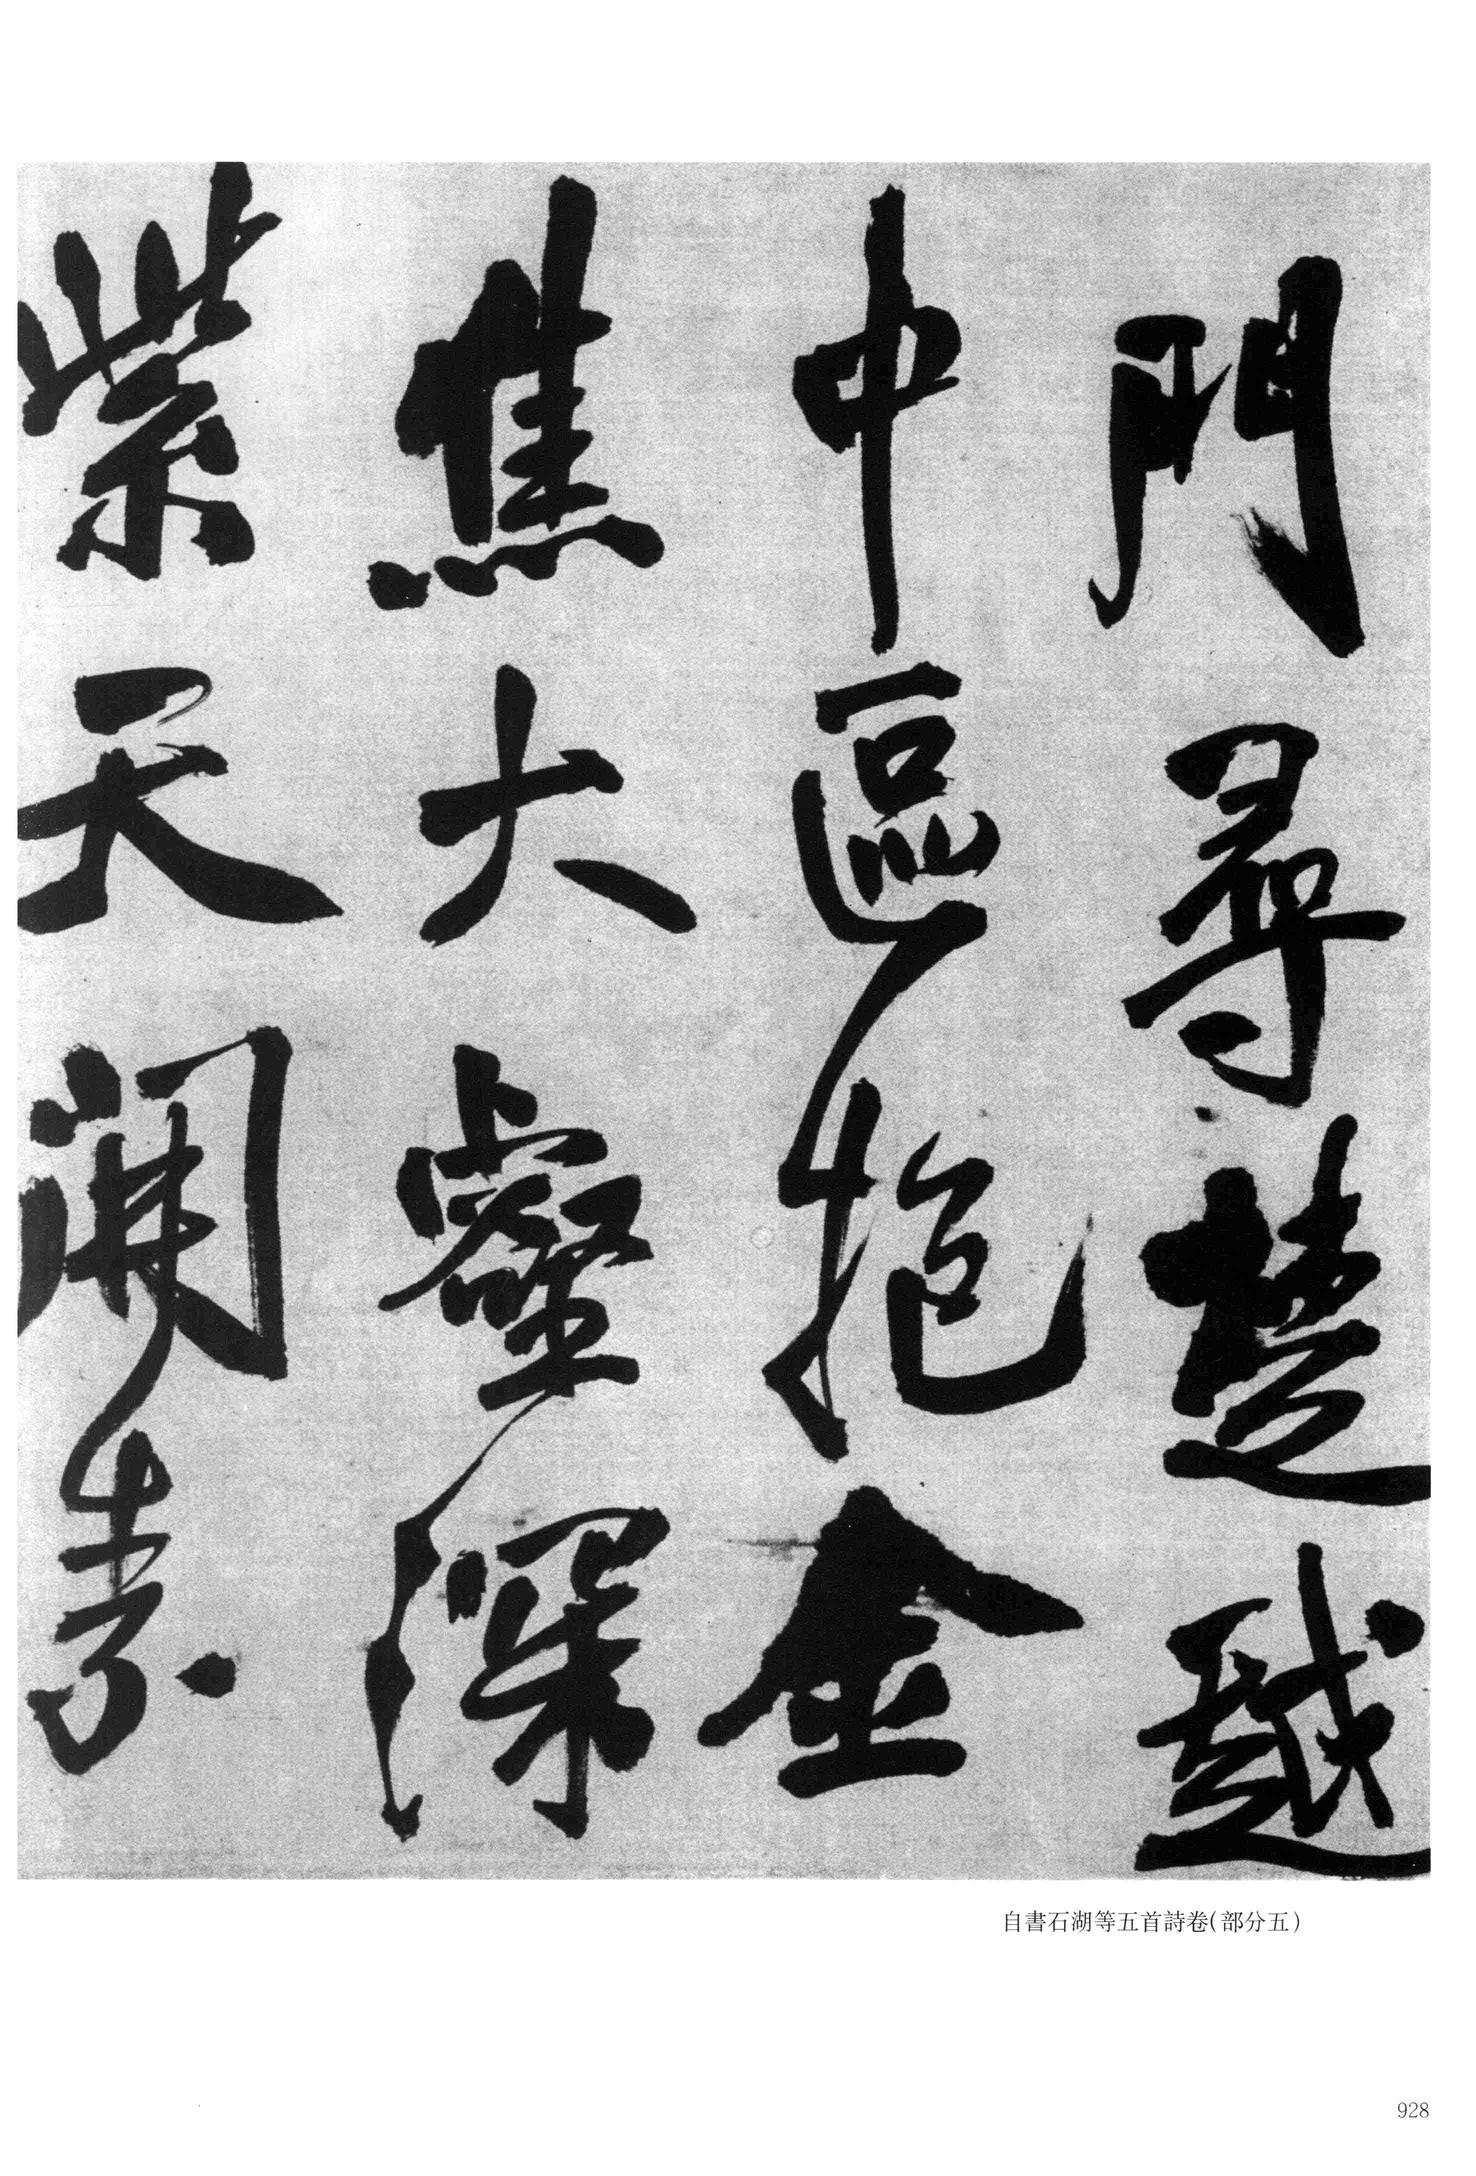 門尋楚越
中區抱金
焦大壑深
紫天開青
自書石湖等五首詩卷(部分五)
928